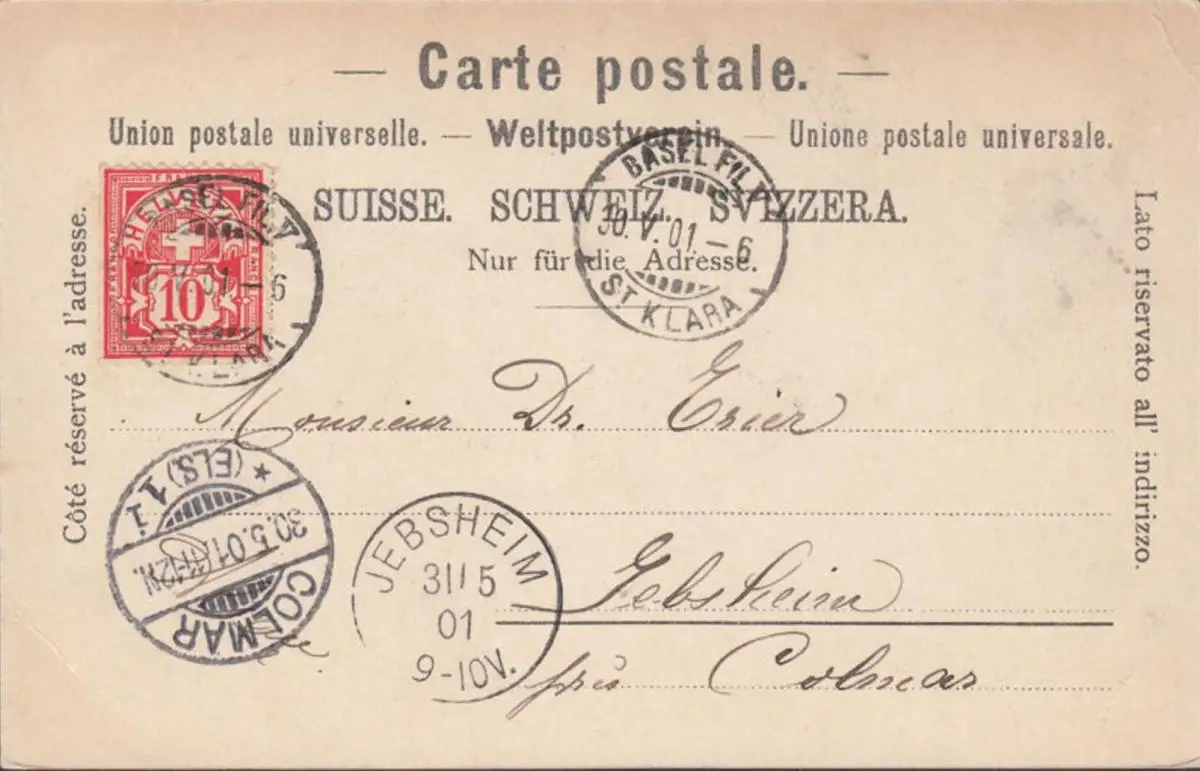 Carte postale.
Union postale universelle. — Weltpostverein. — Unione postale universale.
SUISSE. SCHWEIZ. SVIZZERA.
Nur für die Adresse.
Côté réservé à l'adresse.
Lato riservato all' indirizzo.
FRANCO
HELVETIA
10
BASEL FIL.
30.V.01.-6
ST. KLARA
BASEL FIL.
30.V.01.-6
ST. KLARA
Monsieur Dr. Erier
Jebsheim
près Colmar
COLMAR
30.5.01.11-12N.
* (ELS.) 1 i
JEBSHEIM
31 5
01
9-10V.